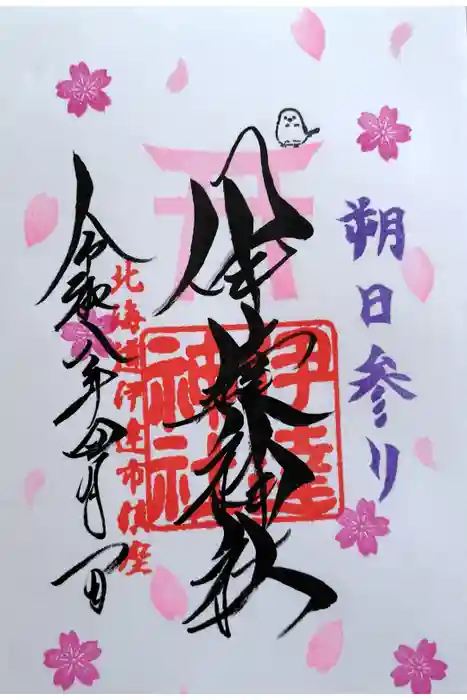 朔日参り
伊達神社
伊達
神社
北海道伊達市鎮座
令和八年四月一日